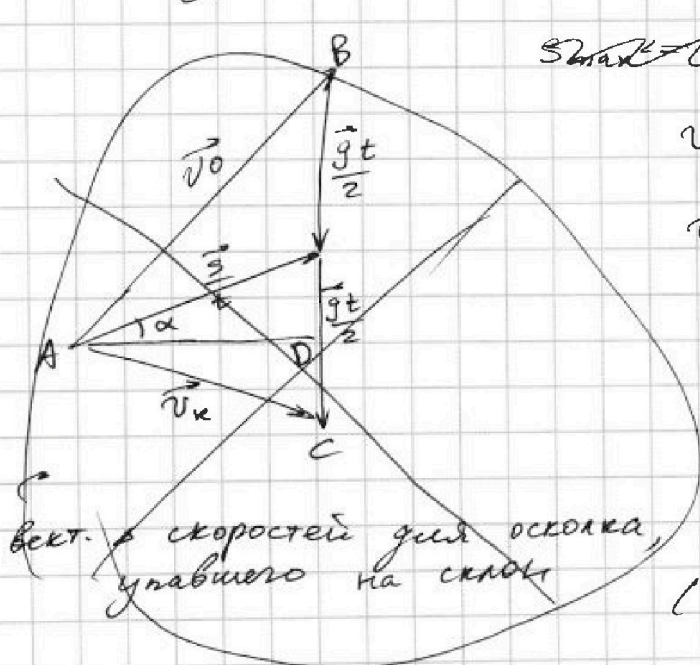 B
v0
gt
2
s
t
α
gt
2
A
D
vк
C
вект. скоростей для осколка,
упавшего на склон